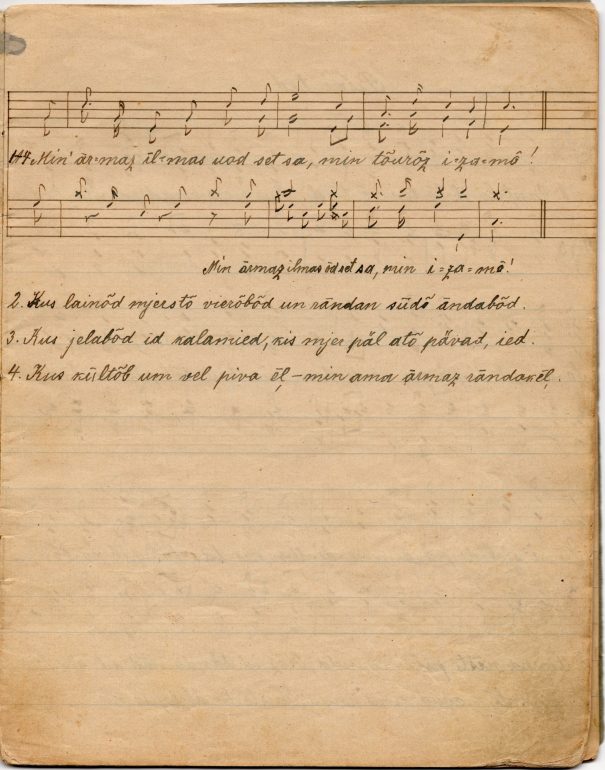 1. Min' är=maz īl=mas uod set sa, min tōurōz i=za=mō!
Min ärmaz ilmas ōd set sa, min i=za=mō!
2. Kus lainōd mjerstō vierōbōd un rāndan sūdō āndabōd.
3. Kus jelabōd id kalamied, kis mjer pāl atō pāvad, ied.
4. Kus kūltōb um vel piva ēļ, – min ama ärmaz rāndakēļ.